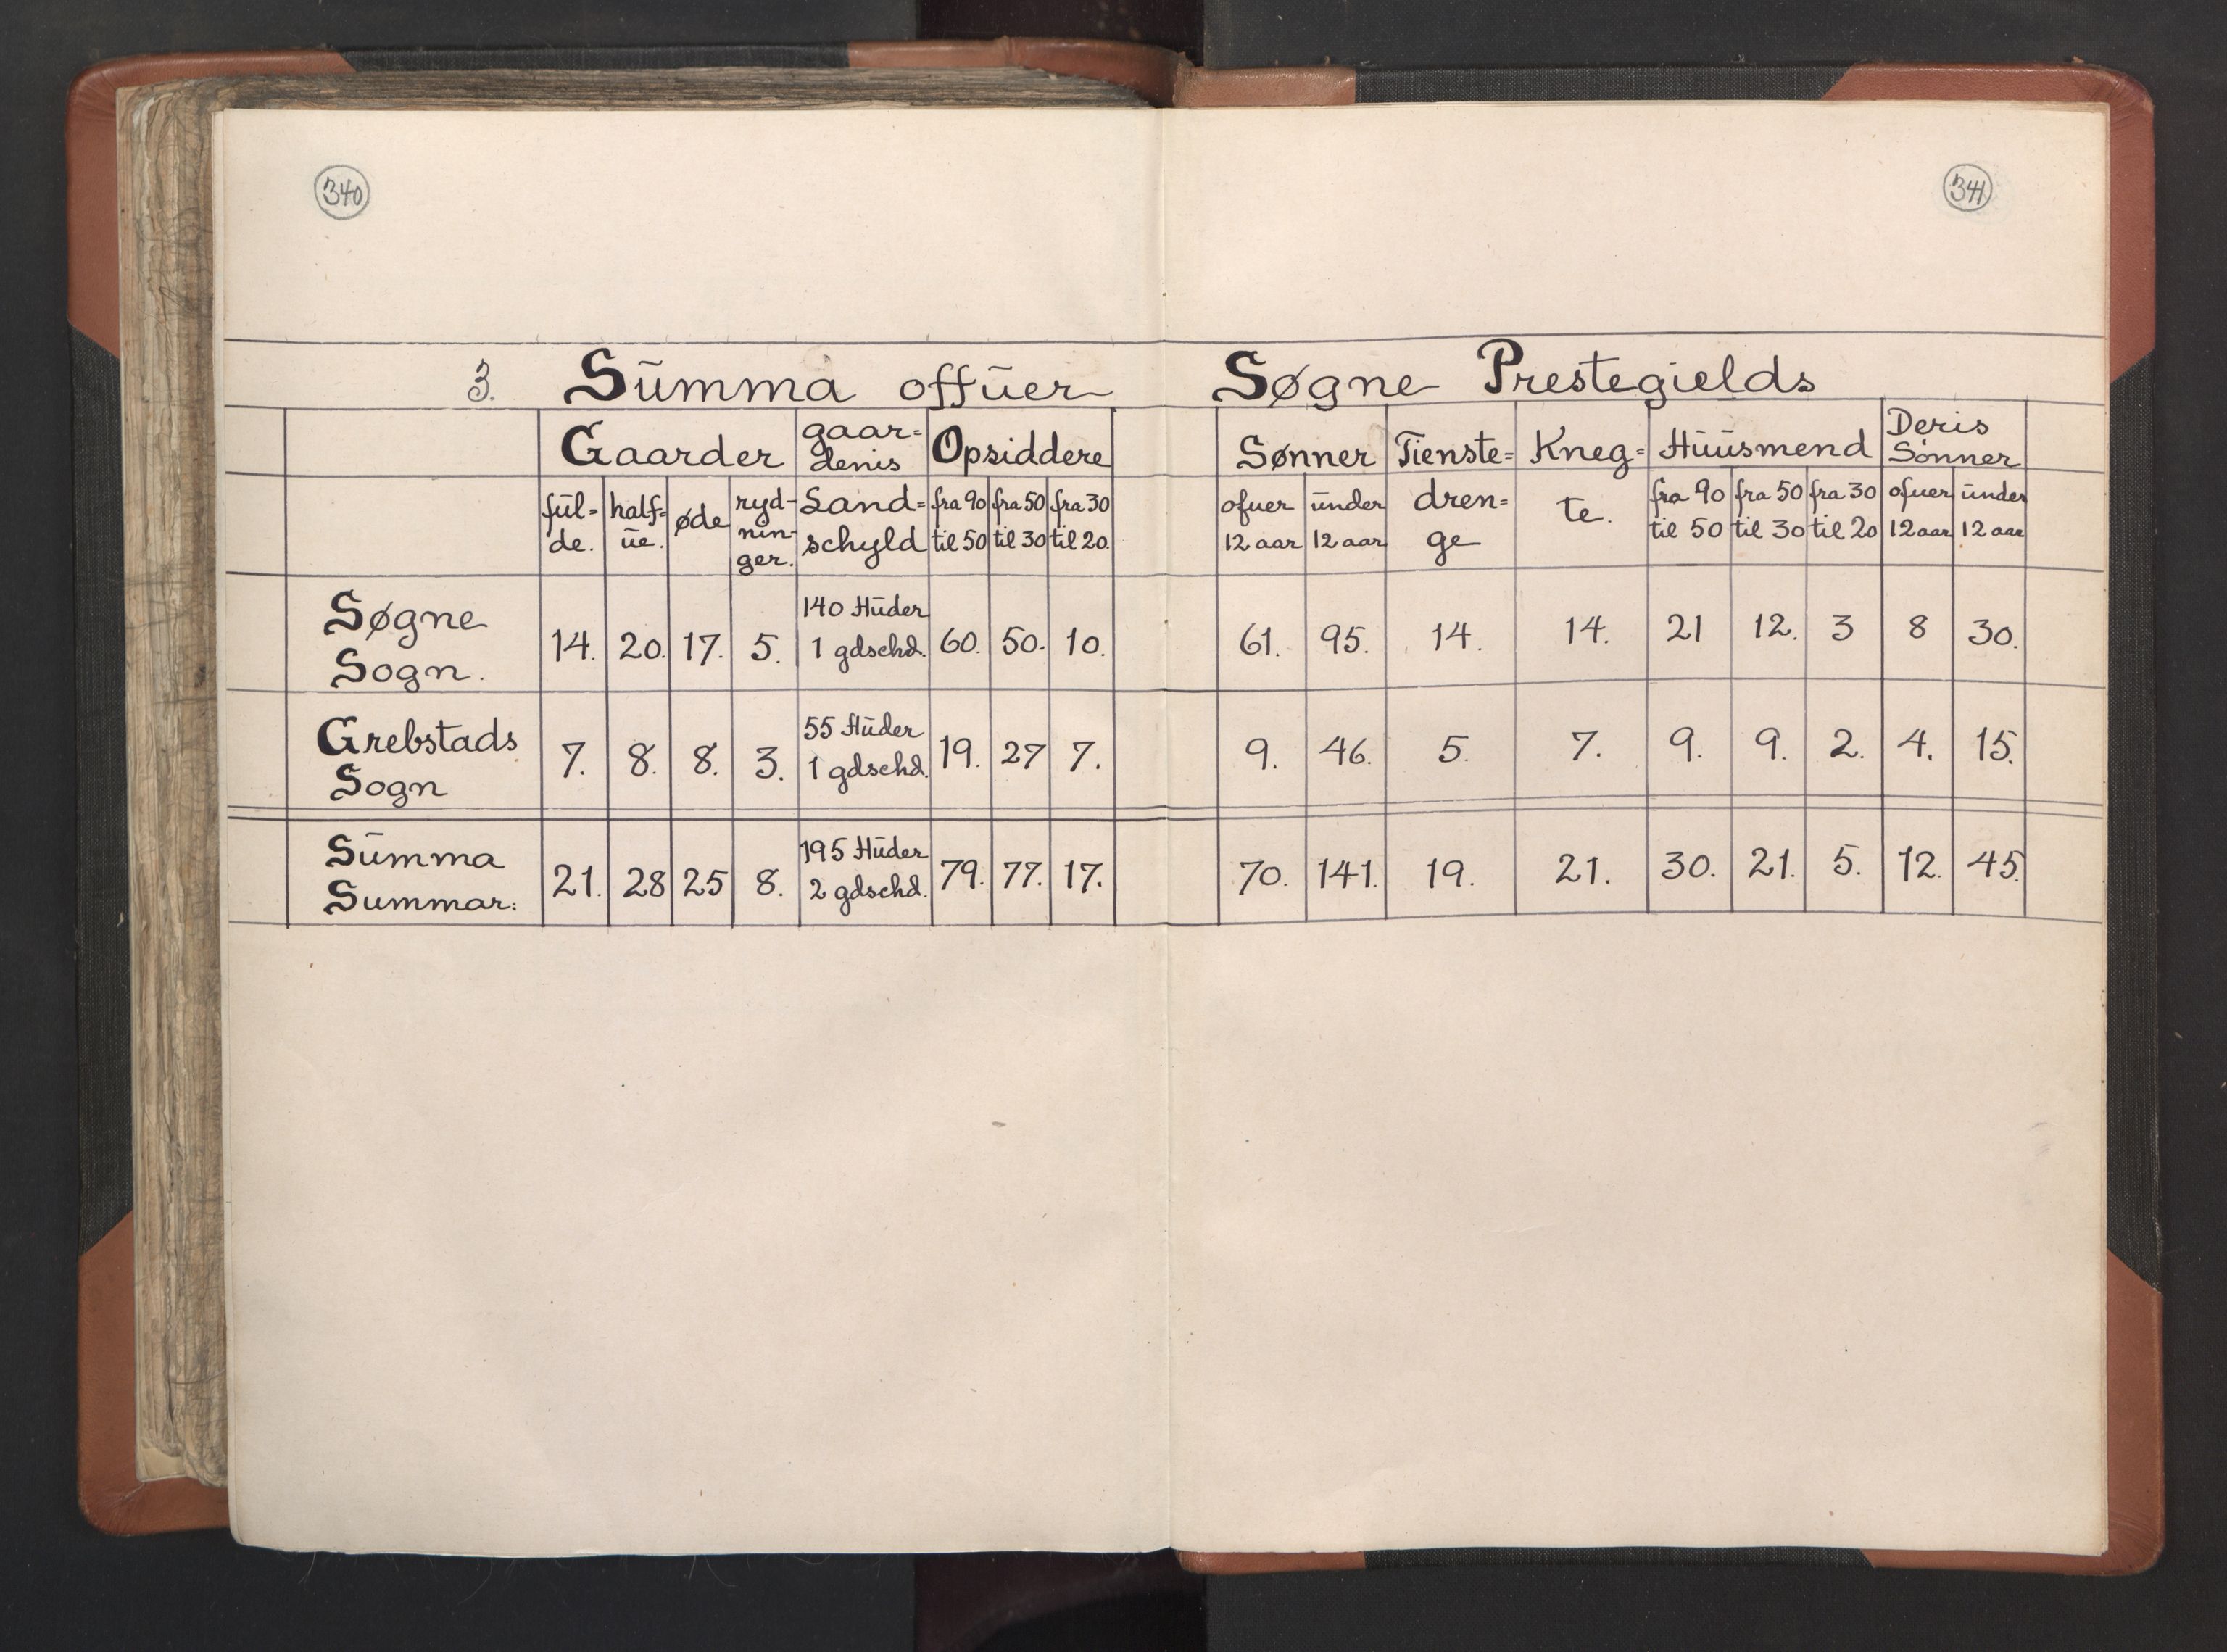 340
341
3. Sūmma offūer Søgne Prestegields
Gaarder gaar= denis Opsiddere Sønner Tienste= Kneg= Hūūsmend Deris Sønner
fūl= de. half= ūe. øde ryd- nin- ger. Land= schyld fra 90 til 50 fra 50 til 30 fra 30 til 20. ofuer 12 aar ūnder 12 aar dren= ge te. fra 90 til 50 fra 50 til 30 fra 30 til 20 ofuer 12 aar ūnder 12 aar
Søgne Sogn. 14. 20. 17. 5. 140 Hūder 1 gdschd. 60. 50. 10. 61. 95. 14. 14. 21 12. 3 8 30.
Grebstads Sogn 7. 8. 8. 3. 55 Hūder 1 gdschd. 19. 27 7. 9. 46. 5. 7. 9. 9. 2. 4. 15.
Sūmma Summar: 21. 28 25 8. 195 Hūder 2 gdschd. 79. 77. 17. 70. 141. 19. 21. 30. 21. 5. 12. 45.